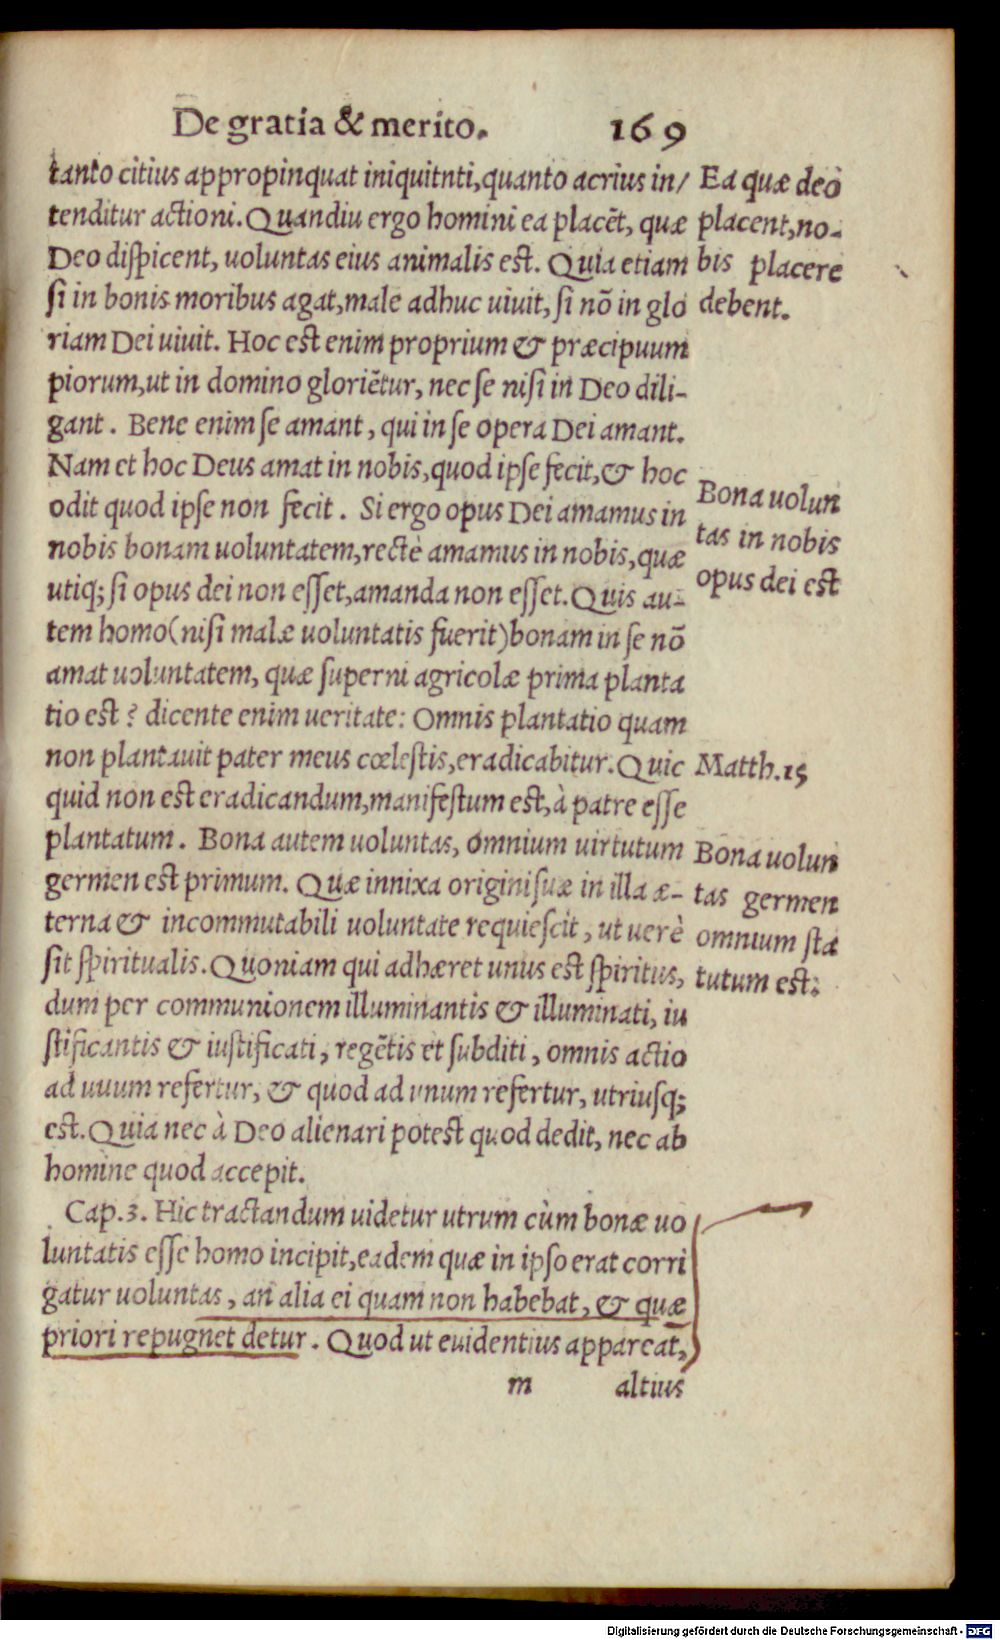 De gratia & merito. 169
tanto citius appropinquat iniquitnti, quanto acrius in/
tenditur actioni. Quandiu ergo homini ea placēt, quæ
Deo dispicent, uoluntas eius animalis est. Quia etiam
si in bonis moribus agat, male adhuc uiuit, si nō in glo
riam Dei uiuit. Hoc est enim proprium & præcipuum
piorum, ut in domino gloriētur, nec se nisi in Deo dili-
gant. Bene enim se amant, qui in se opera Dei amant.
Nam et hoc Deus amat in nobis, quod ipse fecit, & hoc
odit quod ipse non fecit. Si ergo opus Dei amamus in
nobis bonam uoluntatem, rectè amamus in nobis, quæ
utiq; si opus dei non esset, amanda non esset. Quis au-
tem homo (nisi malæ uoluntatis fuerit) bonam in se nō
amat uoluntatem, quæ superni agricolæ prima planta
tio est? dicente enim ueritate: Omnis plantatio quam
non plantauit pater meus cœlestis, eradicabitur. Quic
quid non est eradicandum, manifestum est, à patre esse
plantatum. Bona autem uoluntas, omnium uirtutum
germen est primum. Quæ innixa origini suæ in illa æ-
terna & incommutabili uoluntate requiescit, ut uerè
sit spiritualis. Quoniam qui adhæret unus est spiritus,
dum per communionem illuminantis & illuminati, iu
stificantis & iustificati, regētis et subditi, omnis actio
ad uuum refertur, & quod ad unum refertur, utriusq;
est. Quia nec à Deo alienari potest quod dedit, nec ab
homine quod accepit.
Cap. 3. Hic tractandum uidetur utrum cùm bonæ uo
luntatis esse homo incipit, eadem quæ in ipso erat corri
gatur uoluntas, an alia ei quam non habebat, & quæ
priori repugnet detur. Quod ut euidentius appareat,
m altius
Ea quæ deo
placent, no-
bis placere
debent.
Bona uolun
tas in nobis
opus dei est
Matth. 15
Bona uolun
tas germen
omnium sta
tutum est.
Digitalisierung gefördert durch die Deutsche Forschungsgemeinschaft - DFG